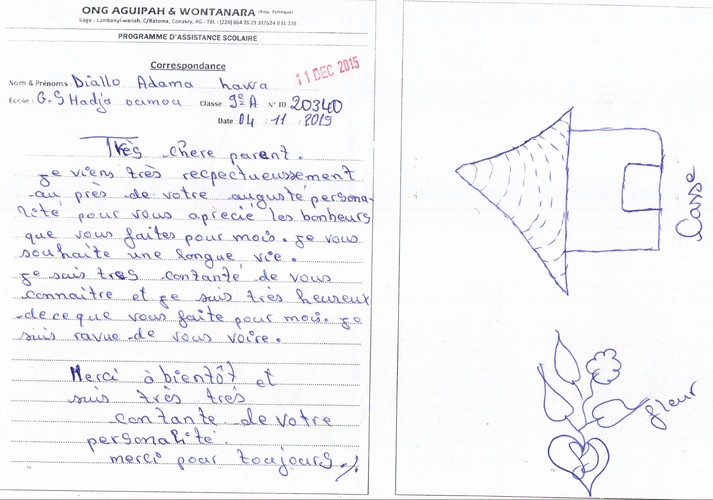 ONG AGUIPAH & WONTANARA (Rép. Tchèque)
Siège : Lambanyi warlah, C/Ratoma, Conakry, RG - Tél. : (224) 664 26 29 37/624 031 138
PROGRAMME D'ASSISTANCE SCOLAIRE
Correspondance
11 DEC 2015
Nom & Prénoms Diallo Adama hawa
École : G.S Hadja oumou Classe 9e A N° ID 20340
Date : 04 11 2015
Très chère parent.
je viens très recpectueussement
au près de votre auguste persona-
lité pour vous aprecié les bonheurs
que vous faites pour mois. je vous
souhaite une longue vie.
je suis tres contanté de vous
connaitre et je suis très heureux
de ce que vous faite pour mois. je
suis ravue de vous voire.
Merci à bientôt et
suis très très
contante de votre
personalité.
merci pour toujours ./.
Casse
fleur